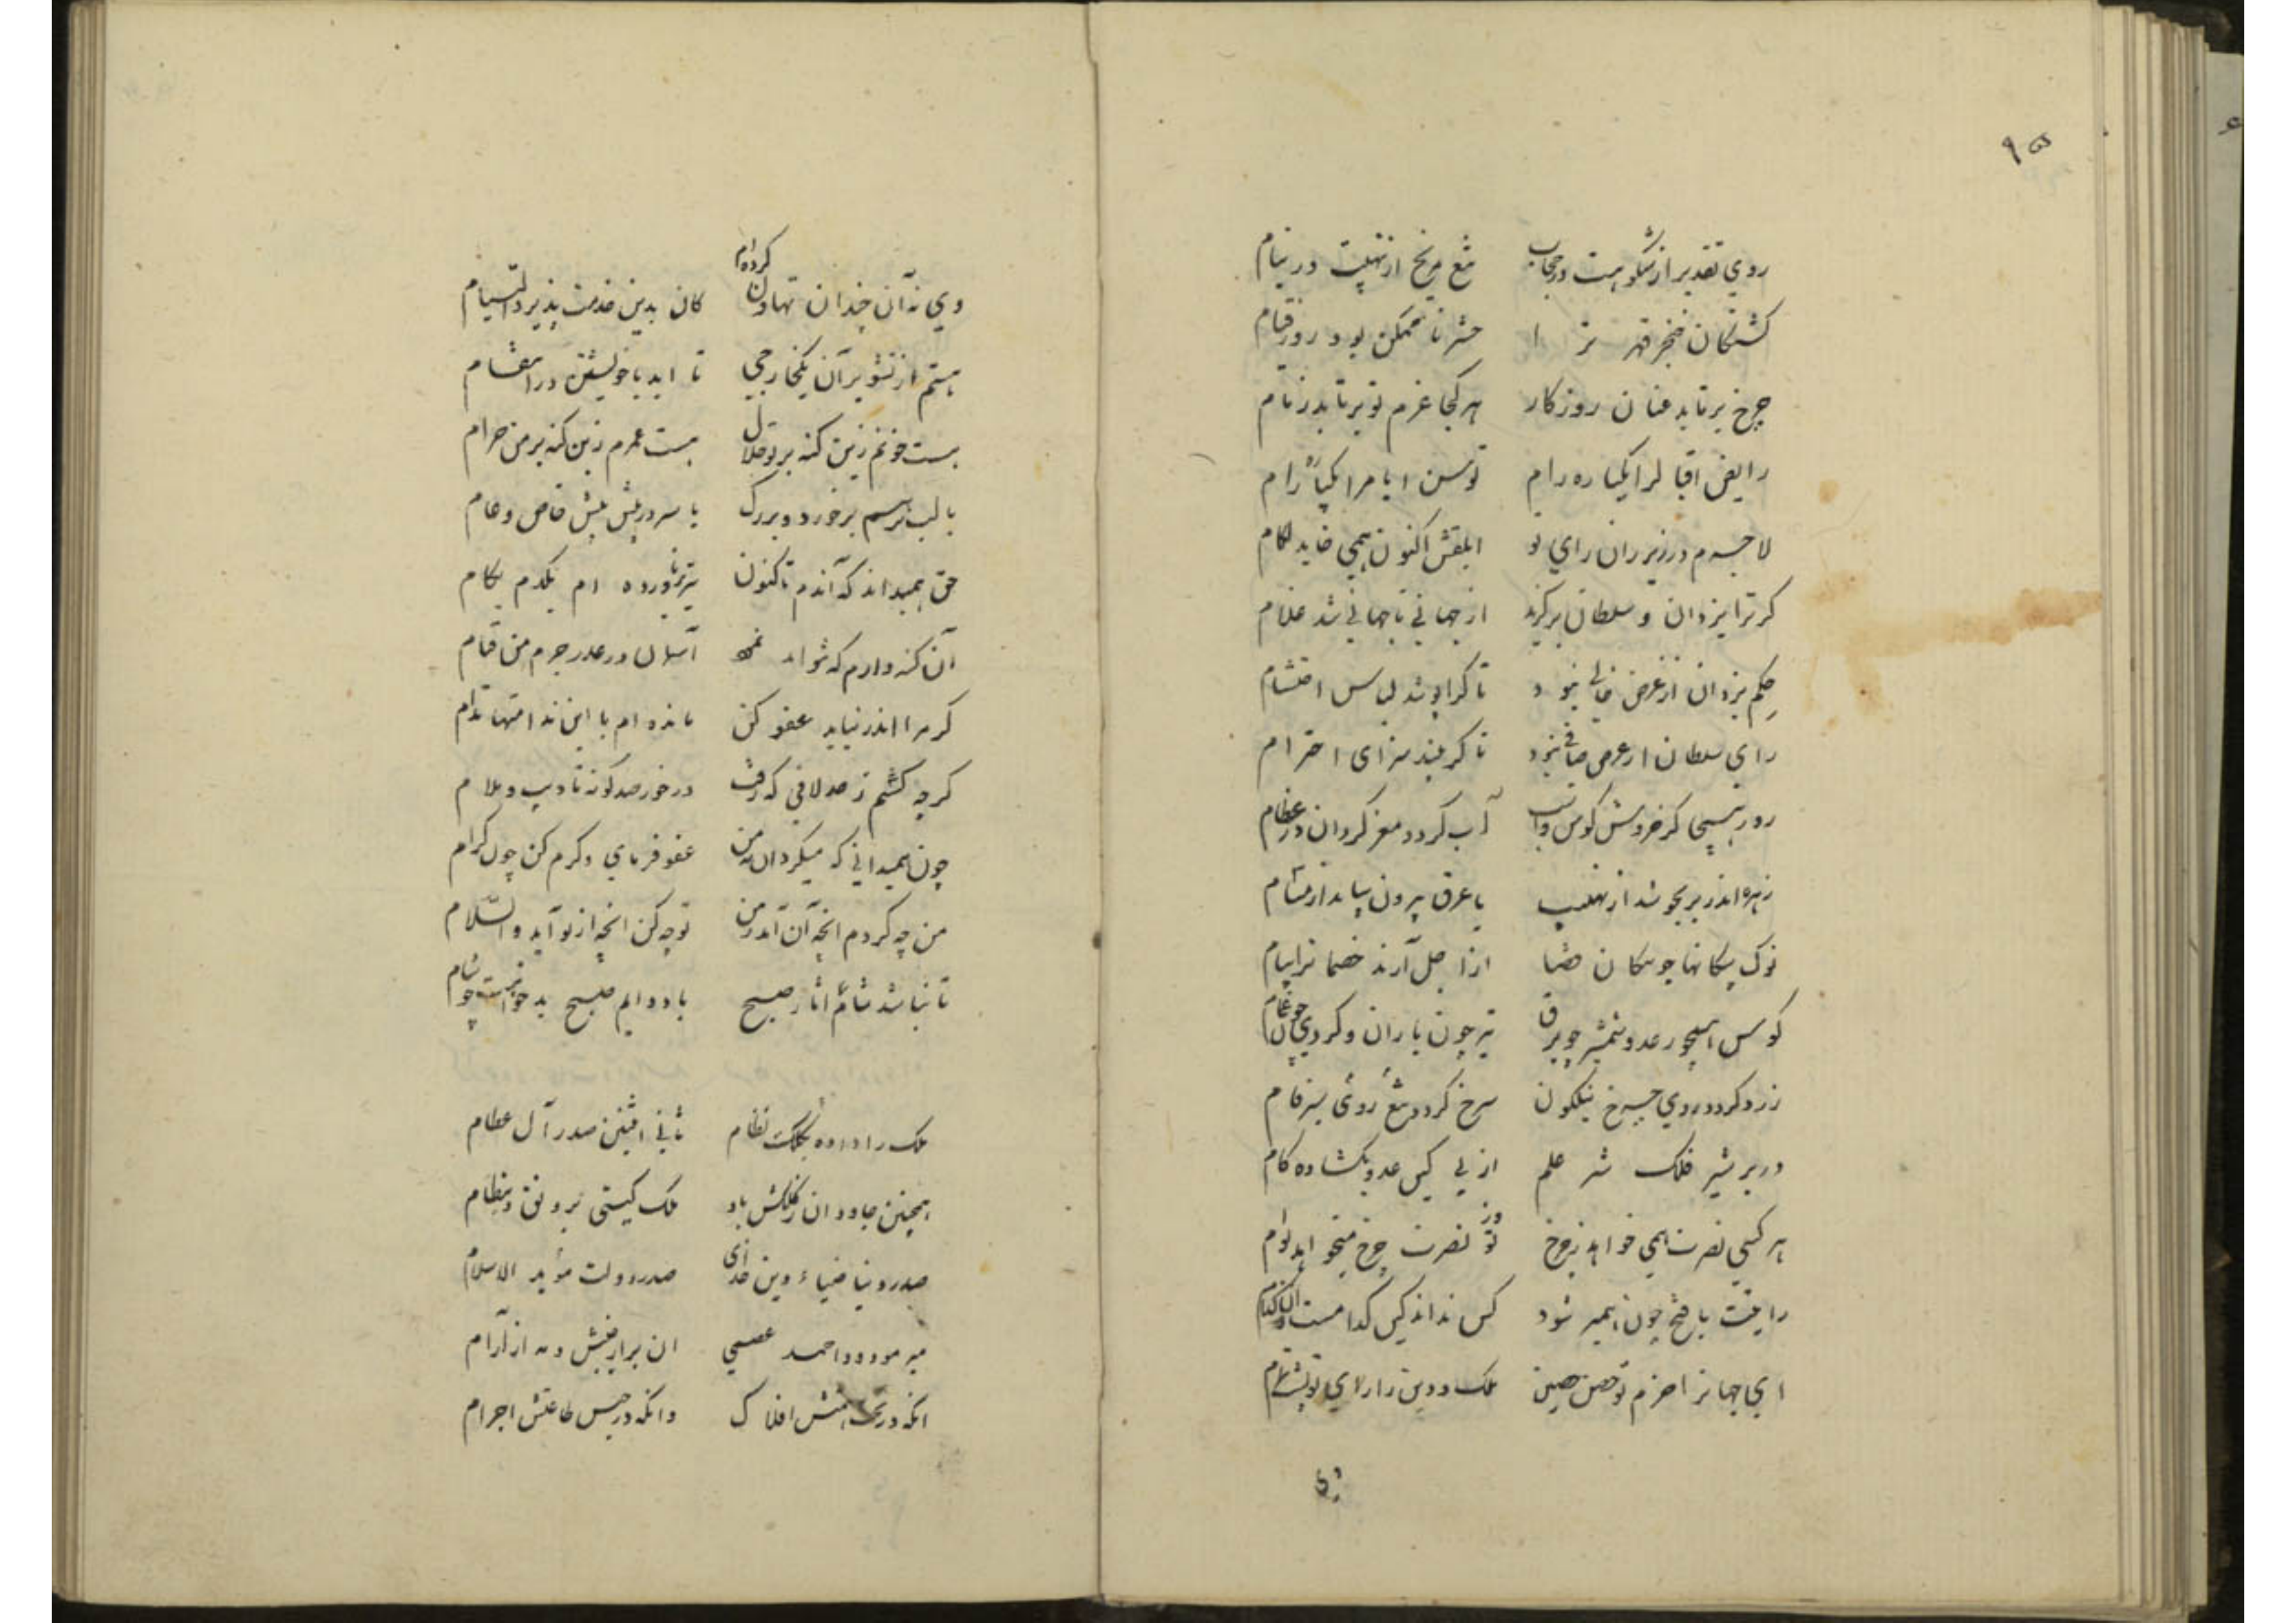 ۹۵
روي تقدير از شكوهت در حجاب تيغ مريخ از نهيبت در نيام
كشتكان خنجر قهر ترا حشر ناممكن بود روز قيام
چرخ برتابد عنان روزكار هر كجا عزم تو برتابد زمام
رايض اقبالرا يكباره رام توسن ايامرا يكباره رام
لاجرم در زير ران راي تو ابلقش اكنون همي خايد لكام
كر ترا يزدان و سلطان بركزيد از جهاني تا جهاني شد غلام
حكم يزدان از غرض خالي نبود تا كرا پوشد لباس احتشام
راي سلطان از غرض صافي نبود تا كه بيند سزاي احترام
روز هيجا كز خروش كوس و آب كردد مغز كردان در عظام
زهره اندر بر بجوشد از نهيب با عرق بيرون بيايد از مشام
نوك پيكانها چو پيكان قضا از اجل آرند خصمانرا پيام
كوس همچو رعد و شمشير چو برق تير چون باران و كردي چون غمام
زرد كردد روي چرخ نيلكون سرخ كردد تيغ روي سبز فام
در بر شير فلك شير علم از پي كين عدو بكشاده كام
هر كسي نصرت همي خواهد ز چرخ وز تو نصرت چرخ ميخواهد بوام
رايتت با فتح چون همبر شود كس نداند كين كدامست آن كدام
اي جهانرا حزم تو حصن حصين ملك و دين را راي تو پشت تمام
وي نه آن چندان تهاون كرده‌ام كان بدين خدمت پذيرد التيام
هستم از تشوير آن يكخارجي تا ابد با خويشتن در انتقام
هست خونم زين كنه بر تو حلال هست عمرم زين كنه بر من حرام
با لب پرسم بر خورد و بزرك با سر در پيش پيش خاص و عام
حق هميداند كه آندم تا كنون بر نياورده ام يكدم بكام
آن كنه دارم كه نتواند نمود آسمان در عذر جرم من قيام
كر مرا اندر نيابد عفو كن مانده ام با اين ندامتها مدام
كرچه كشتم ز صد لافي كه رفت درخور صد كونه تاديب و ملام
چون هميداني كه ميكرد آن نه من عفو فرماي و كرم كن چون كرام
من چه كردم انچه آن آمد ز من تو چه كن انچه از تو آيد والسلام
تا نباشد شام را آثار صبح باد دايم صبح بدخواهت چو شام
ملك را داده بكلك نظام ثاني اثنين صدر آل عظام
همچنين جاودان ز كلكش باد ملك كيتي برونق و بنظام
صدر دنيا ضياء دين خداي صدر دولت مؤيد الاسلام
مير مودود احمد عصمي ان براز جنبش و مه از آرام
انكه در تحت همتش افلاك وانكه در حبس طاعتش اجرام